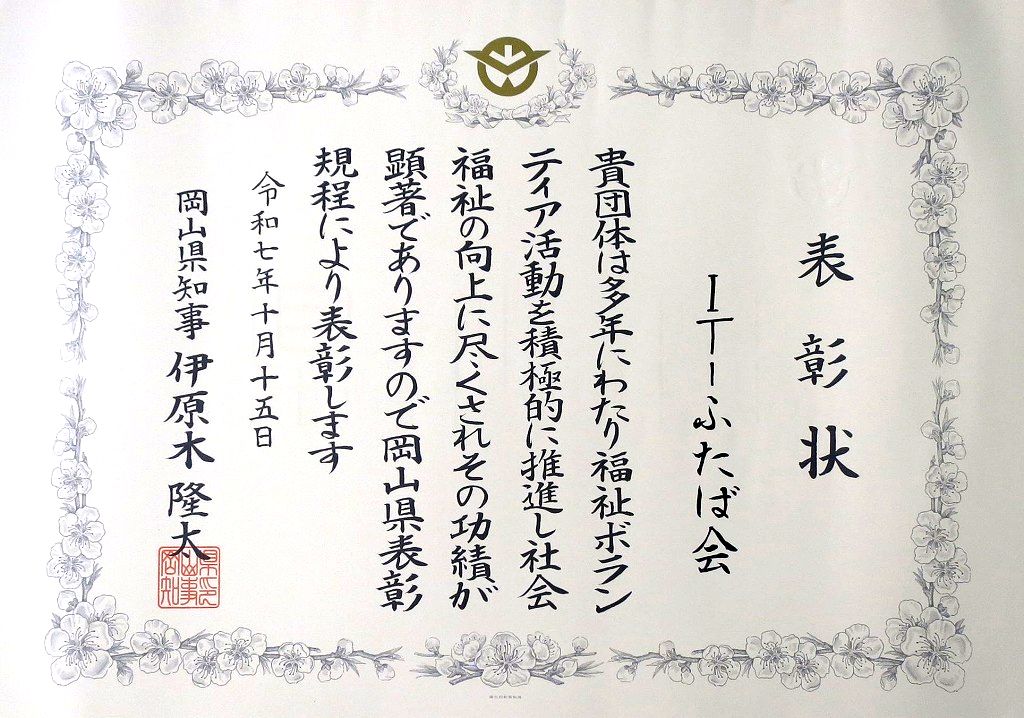 表彰状
ITーふたば会
貴団体は多年にわたり福祉ボラン
ティア活動を積極的に推進し社会
福祉の向上に尽くされその功績が
顕著でありますので岡山県表彰
規程により表彰します
令和七年十月十五日
岡山県知事 伊原木隆太